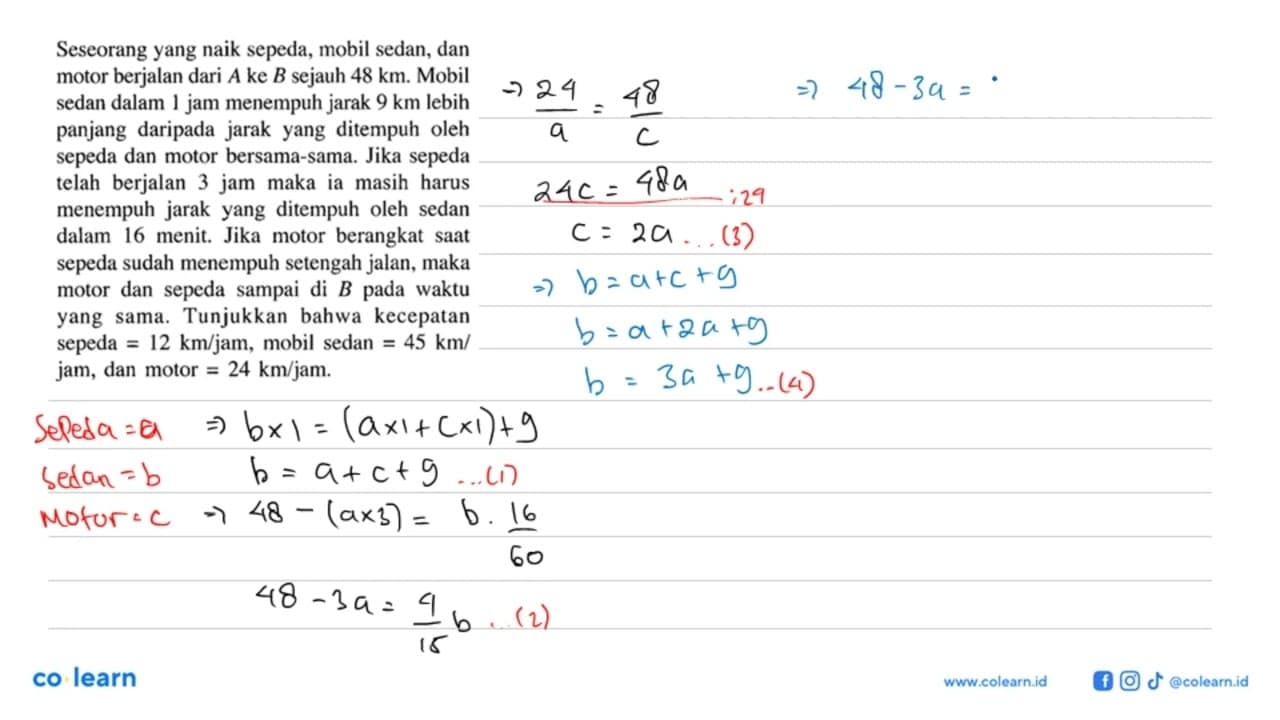 Seseorang yang naik sepeda, mobil sedan, dan
motor berjalan dari A ke B sejauh 48 km. Mobil
sedan dalam 1 jam menempuh jarak 9 km lebih
panjang daripada jarak yang ditempuh oleh
sepeda dan motor bersama-sama. Jika sepeda
telah berjalan 3 jam maka ia masih harus
menempuh jarak yang ditempuh oleh sedan
dalam 16 menit. Jika motor berangkat saat
sepeda sudah menempuh setengah jalan, maka
motor dan sepeda sampai di B pada waktu
yang sama. Tunjukkan bahwa kecepatan
sepeda = 12 km/jam, mobil sedan = 45 km/
jam, dan motor = 24 km/jam.
Sepeda = a
Sedan = b
Motor = c
⇒ b×1 = (a×1 + c×1) + 9
b = a + c + 9 ...(1)
⇒ 48 - (a×3) = b . 16/60
48 - 3a = 4/15 b ...(2)
⇒ 24/a = 48/c
24c = 48a :24
c = 2a ...(3)
⇒ b = a + c + 9
b = a + 2a + 9
b = 3a + 9 ..(4)
⇒ 48 - 3a =
co learn
www.colearn.id
@colearn.id